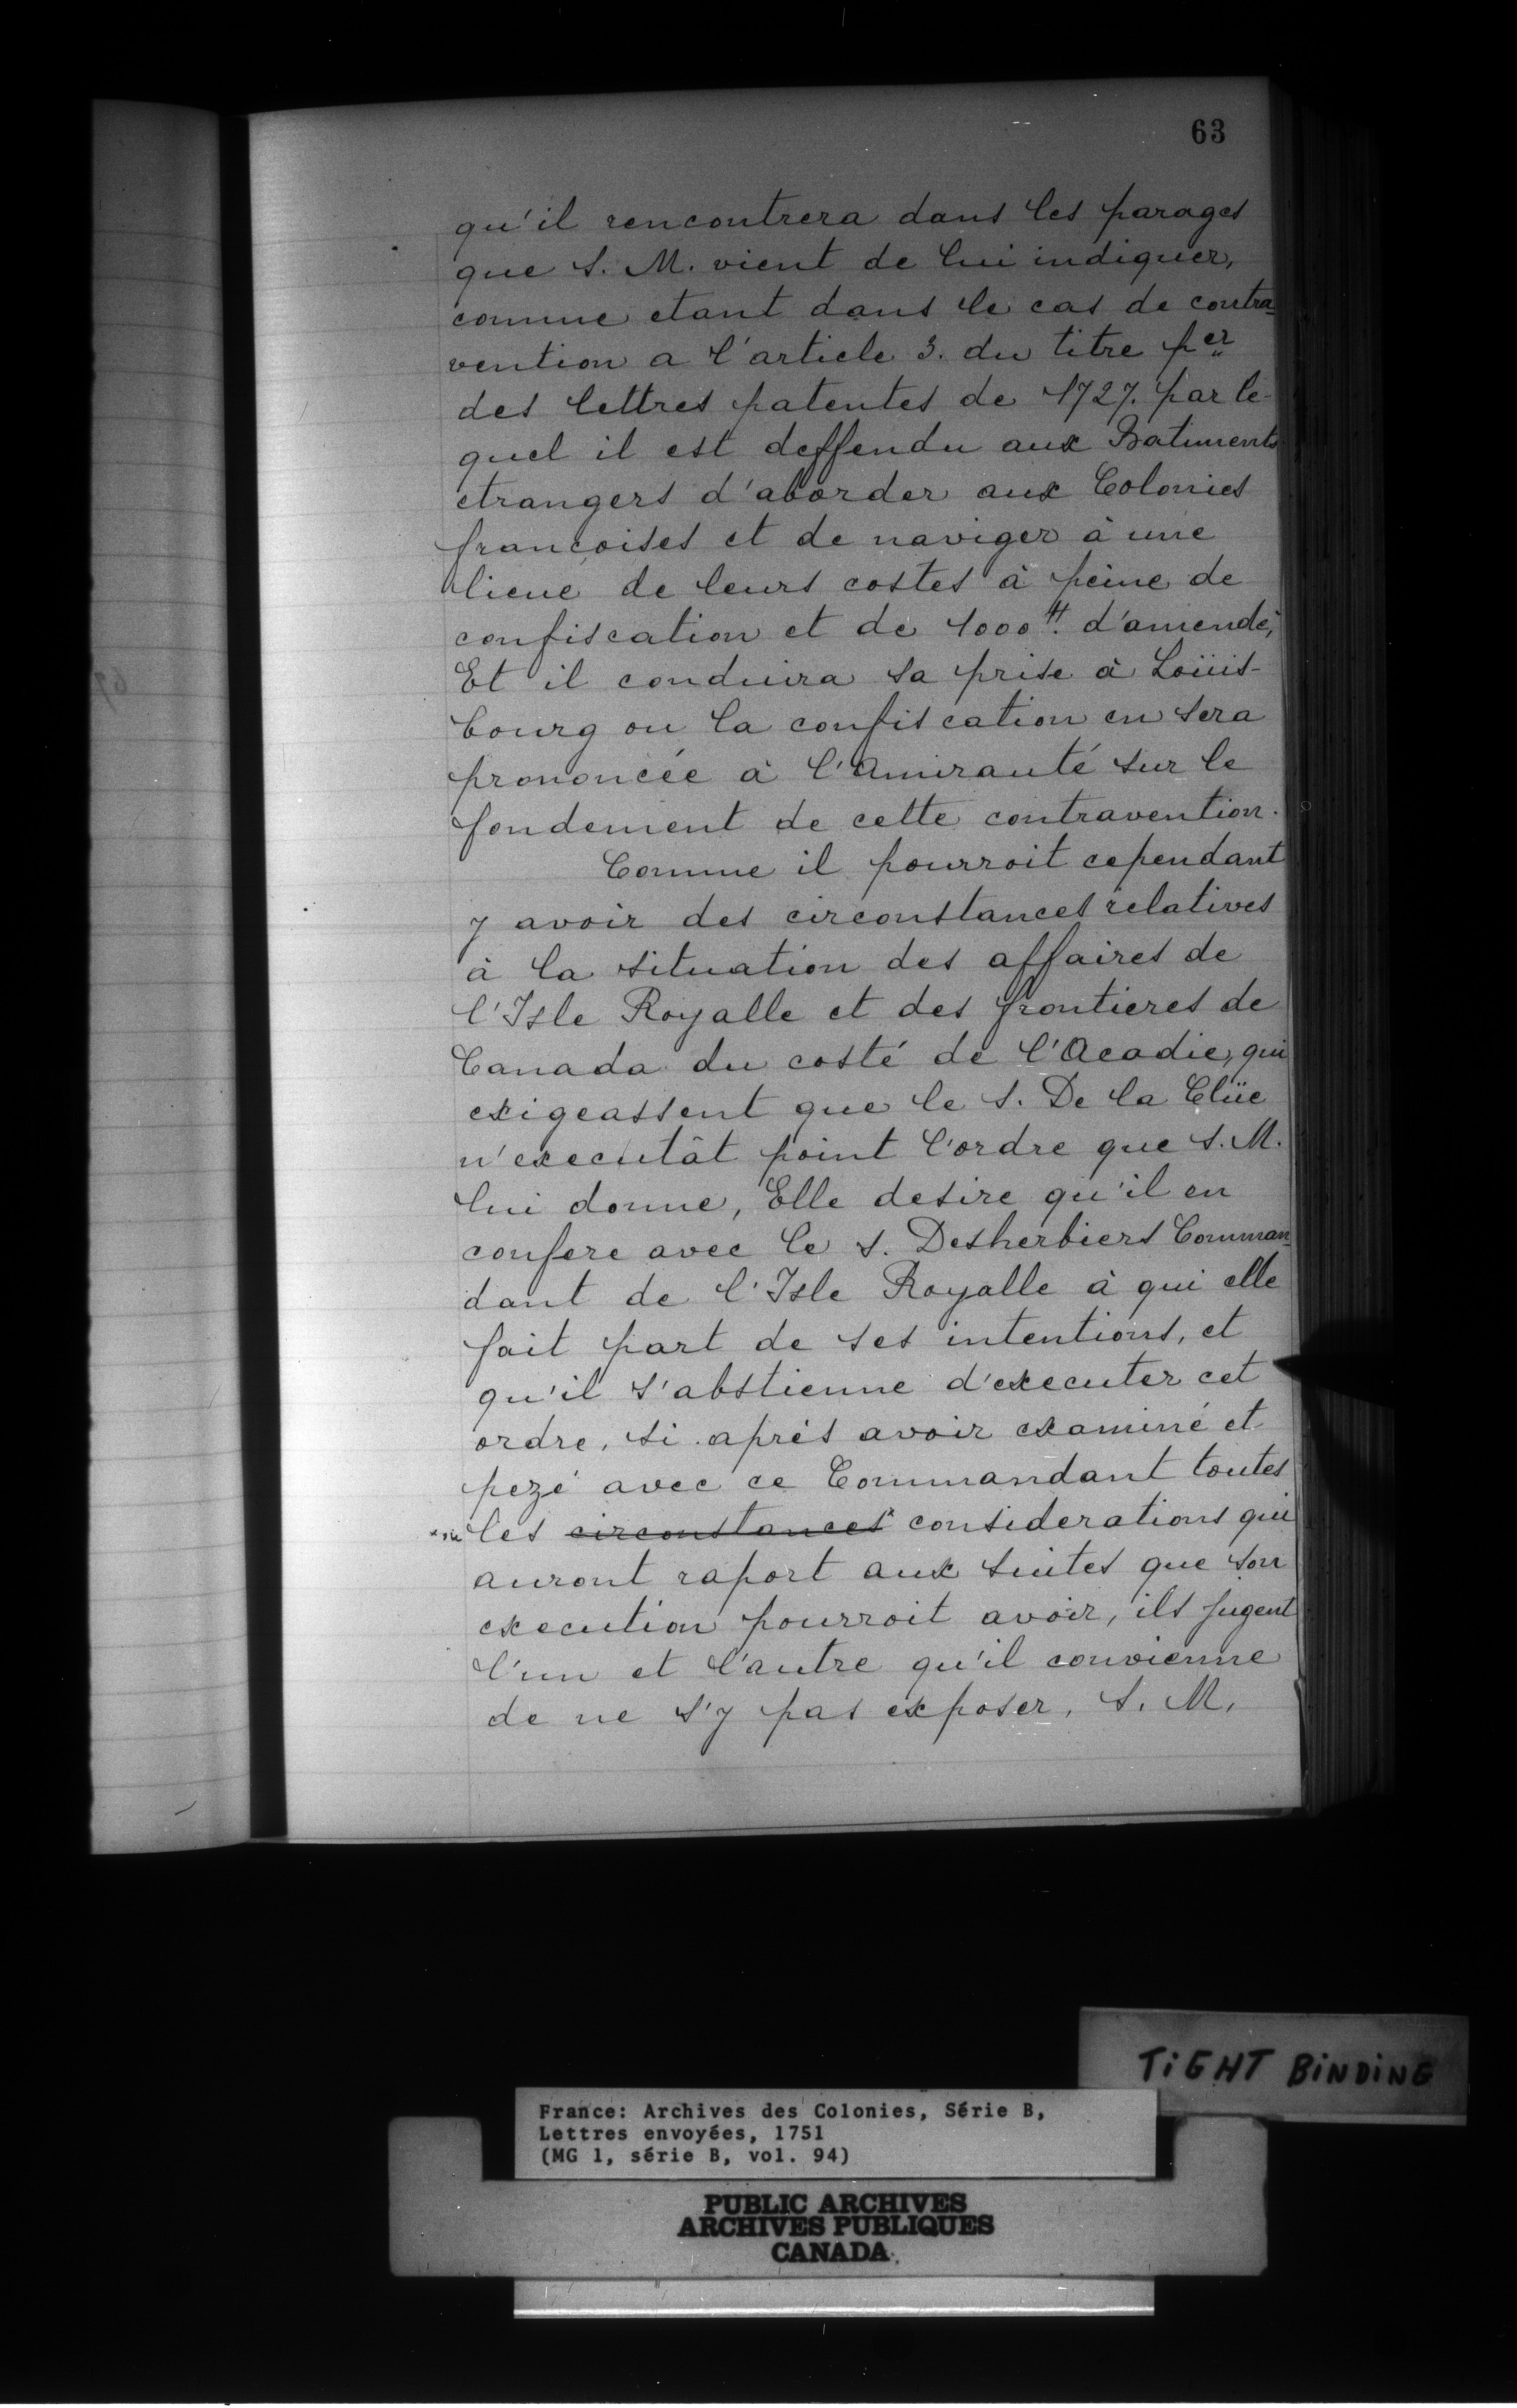 63
qu'il rencontrera dans les parages
que S. M. vient de lui indiquer,
comme etant dans le cas de contra-
vention a l'article 3. du titre per
des lettres patentes de 1727. par le-
quel il est deffendu aux Batiments
etrangers d'aborder aux Colonies
françoises et de naviger à une
lieue de leurs costes à peine de
confiscation et de 1000 ₶. d'amende;
Et il conduira sa prise à Loüis-
bourg ou la confiscation en sera
prononcée à l'Amirauté sur le
fondement de cette contravention.
Comme il pourroit cependant
y avoir des circonstances relatives
à la situation des affaires de
l'Isle Royalle et des frontieres de
Canada du costé de l'Acadie, qui
exigeassent que le S. De la Clüe
n'executât point l'ordre que S. M.
lui donne, Elle desire qu'il en
confere avec le S. Desherbiers Comman-
dant de l'Isle Royalle à qui elle
fait part de ses intentions, et
qu'il s'abstienne d'executer cet
ordre, si aprés avoir examiné et
pezé avec ce Commandant toutes
les circonstances* considerations qui
auront raport aux suites que son
execution pourroit avoir, ils jugent
l'un et l'autre qu'il convienne
de ne s'y pas exposer, S. M.
TiGHT BiNDiNG
France: Archives des Colonies, Série B,
Lettres envoyées, 1751
(MG 1, série B, vol. 94)
PUBLIC ARCHIVES
ARCHIVES PUBLIQUES
CANADA